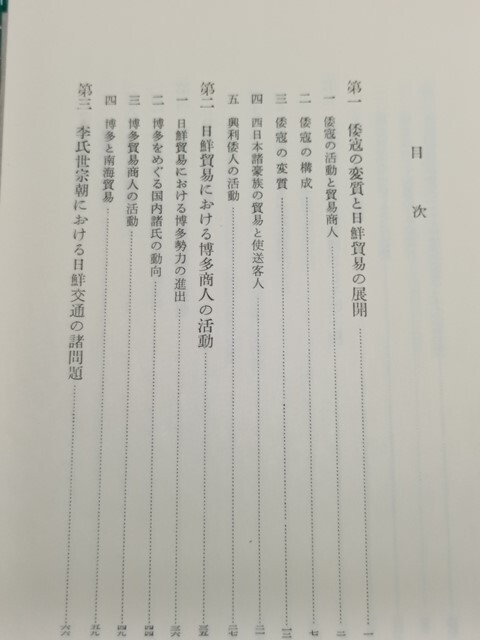 目次
第一 倭寇の変質と日鮮貿易の展開 一
一 倭寇の活動と貿易商人 二
二 倭寇の構成 七
三 倭寇の変質 一三
四 西日本諸豪族の貿易と使送客人 二一
五 興利倭人の活動 二七
第二 日鮮貿易における博多商人の活動 三五
一 日鮮貿易における博多勢力の進出 三六
二 博多をめぐる国内諸氏の動向 四四
三 博多貿易商人の活動 四九
四 博多と南海貿易 五九
第三 李氏世宗朝における日鮮交通の諸問題 六六